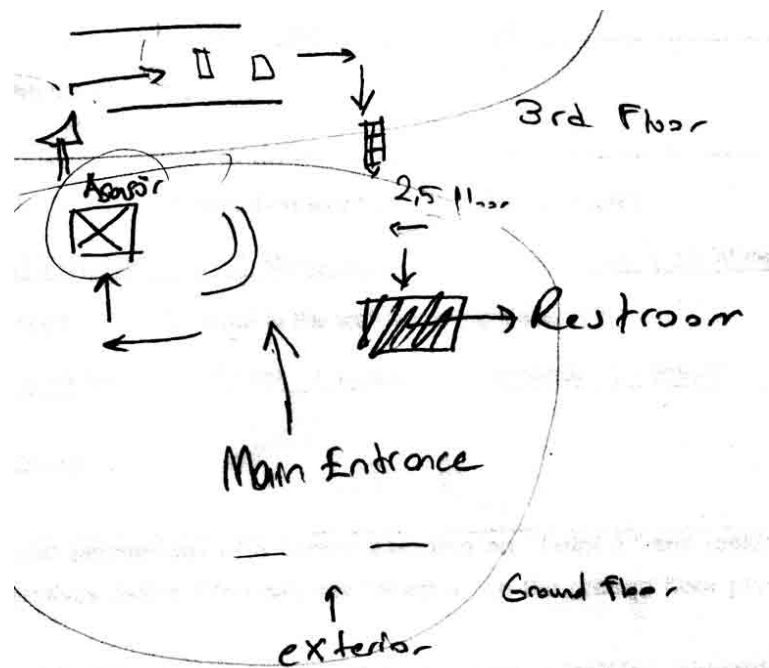 3rd Floor
Asansör
2,5 floor
Restroom
Main Entrance
Ground Floor
exterior